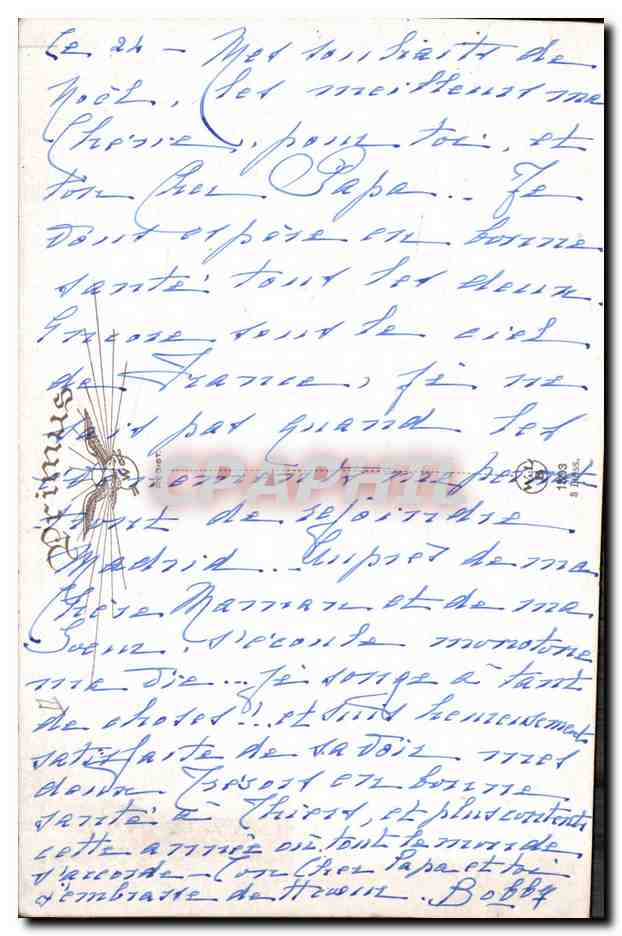 Le 24 - Mes souhaits de
Noël, les meilleurs ma
Chérie, pour toi, et
ton Cher Papa.. Je
vous espère en bonne
santé tous les deux.
Encore sous le ciel
de France, je ne
sais pas quand les
me
tont de rejoindre
Madrid.. Auprès de ma
Chère Maman et de ma
Soeur, s'écoule monotone
ma vie... Je songe à tant
de choses!.. et suis heureusement
satisfaite de savoir mes
deux Trésors en bonne
santé à Thiers, et plus contente
cette année où tout le monde
s'accorde - Ton Cher Papa et toi
J'embrasse de tt coeur. Bobby
Primus
DEPOSE
1393
CPAPHIL